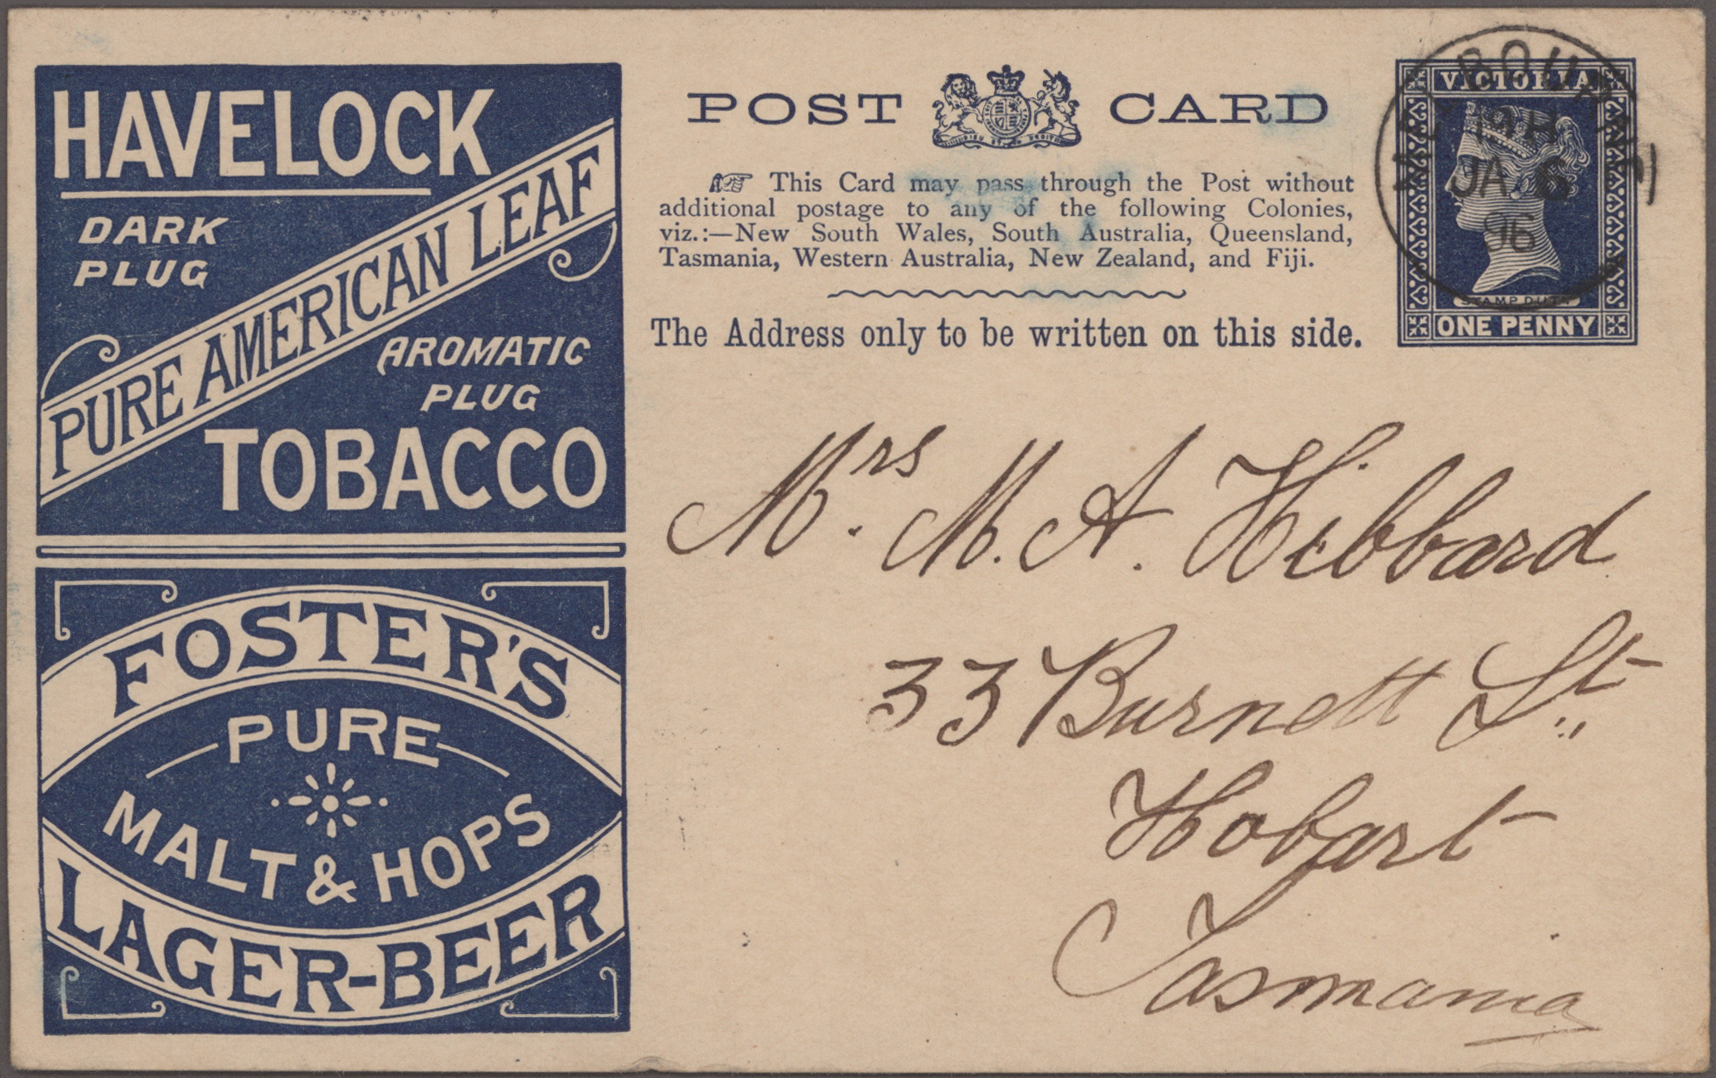 HAVELOCK
DARK
PLUG
PURE AMERICAN LEAF
AROMATIC
PLUG
TOBACCO
FOSTER'S
PURE
MALT & HOPS
LAGER-BEER
POST CARD
☞ This Card may pass through the Post without
additional postage to any of the following Colonies,
viz.:—New South Wales, South Australia, Queensland,
Tasmania, Western Australia, New Zealand, and Fiji.
The Address only to be written on this side.
VICTORIA
STAMP DUTY
ONE PENNY
MELBOURNE
JA 6
96
Mrs. M. A. Hibbard
33 Burnett St.
Hobart
Tasmania